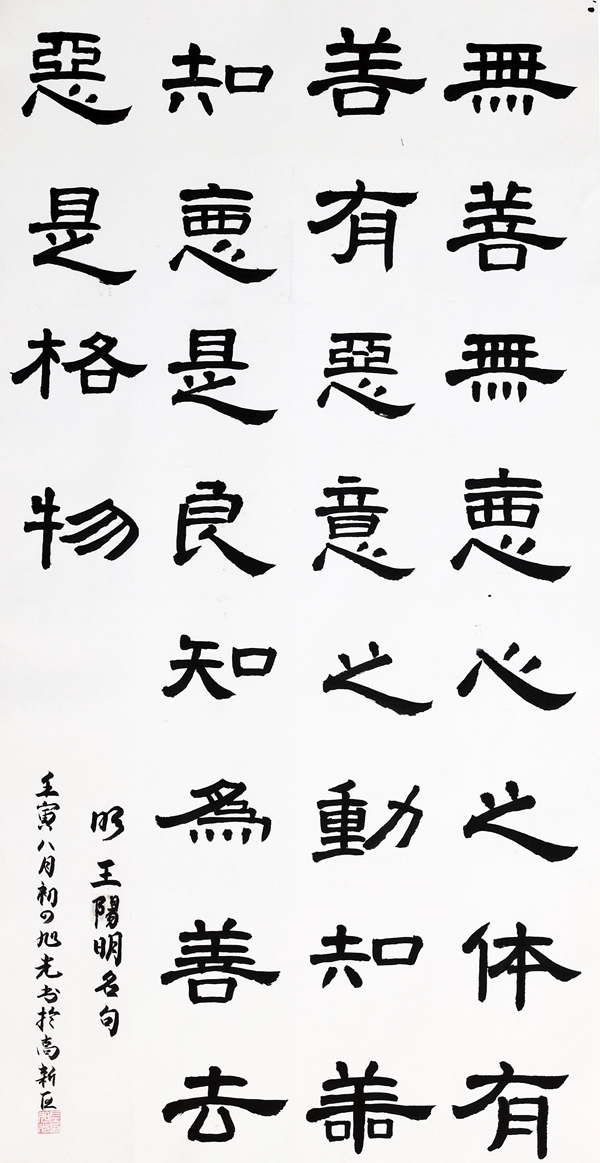 無善無惡心之体有
善有惡意之動知善
知惡是良知為善去
惡是格物
明王陽明名句
壬寅八月初四旭光书於高新区